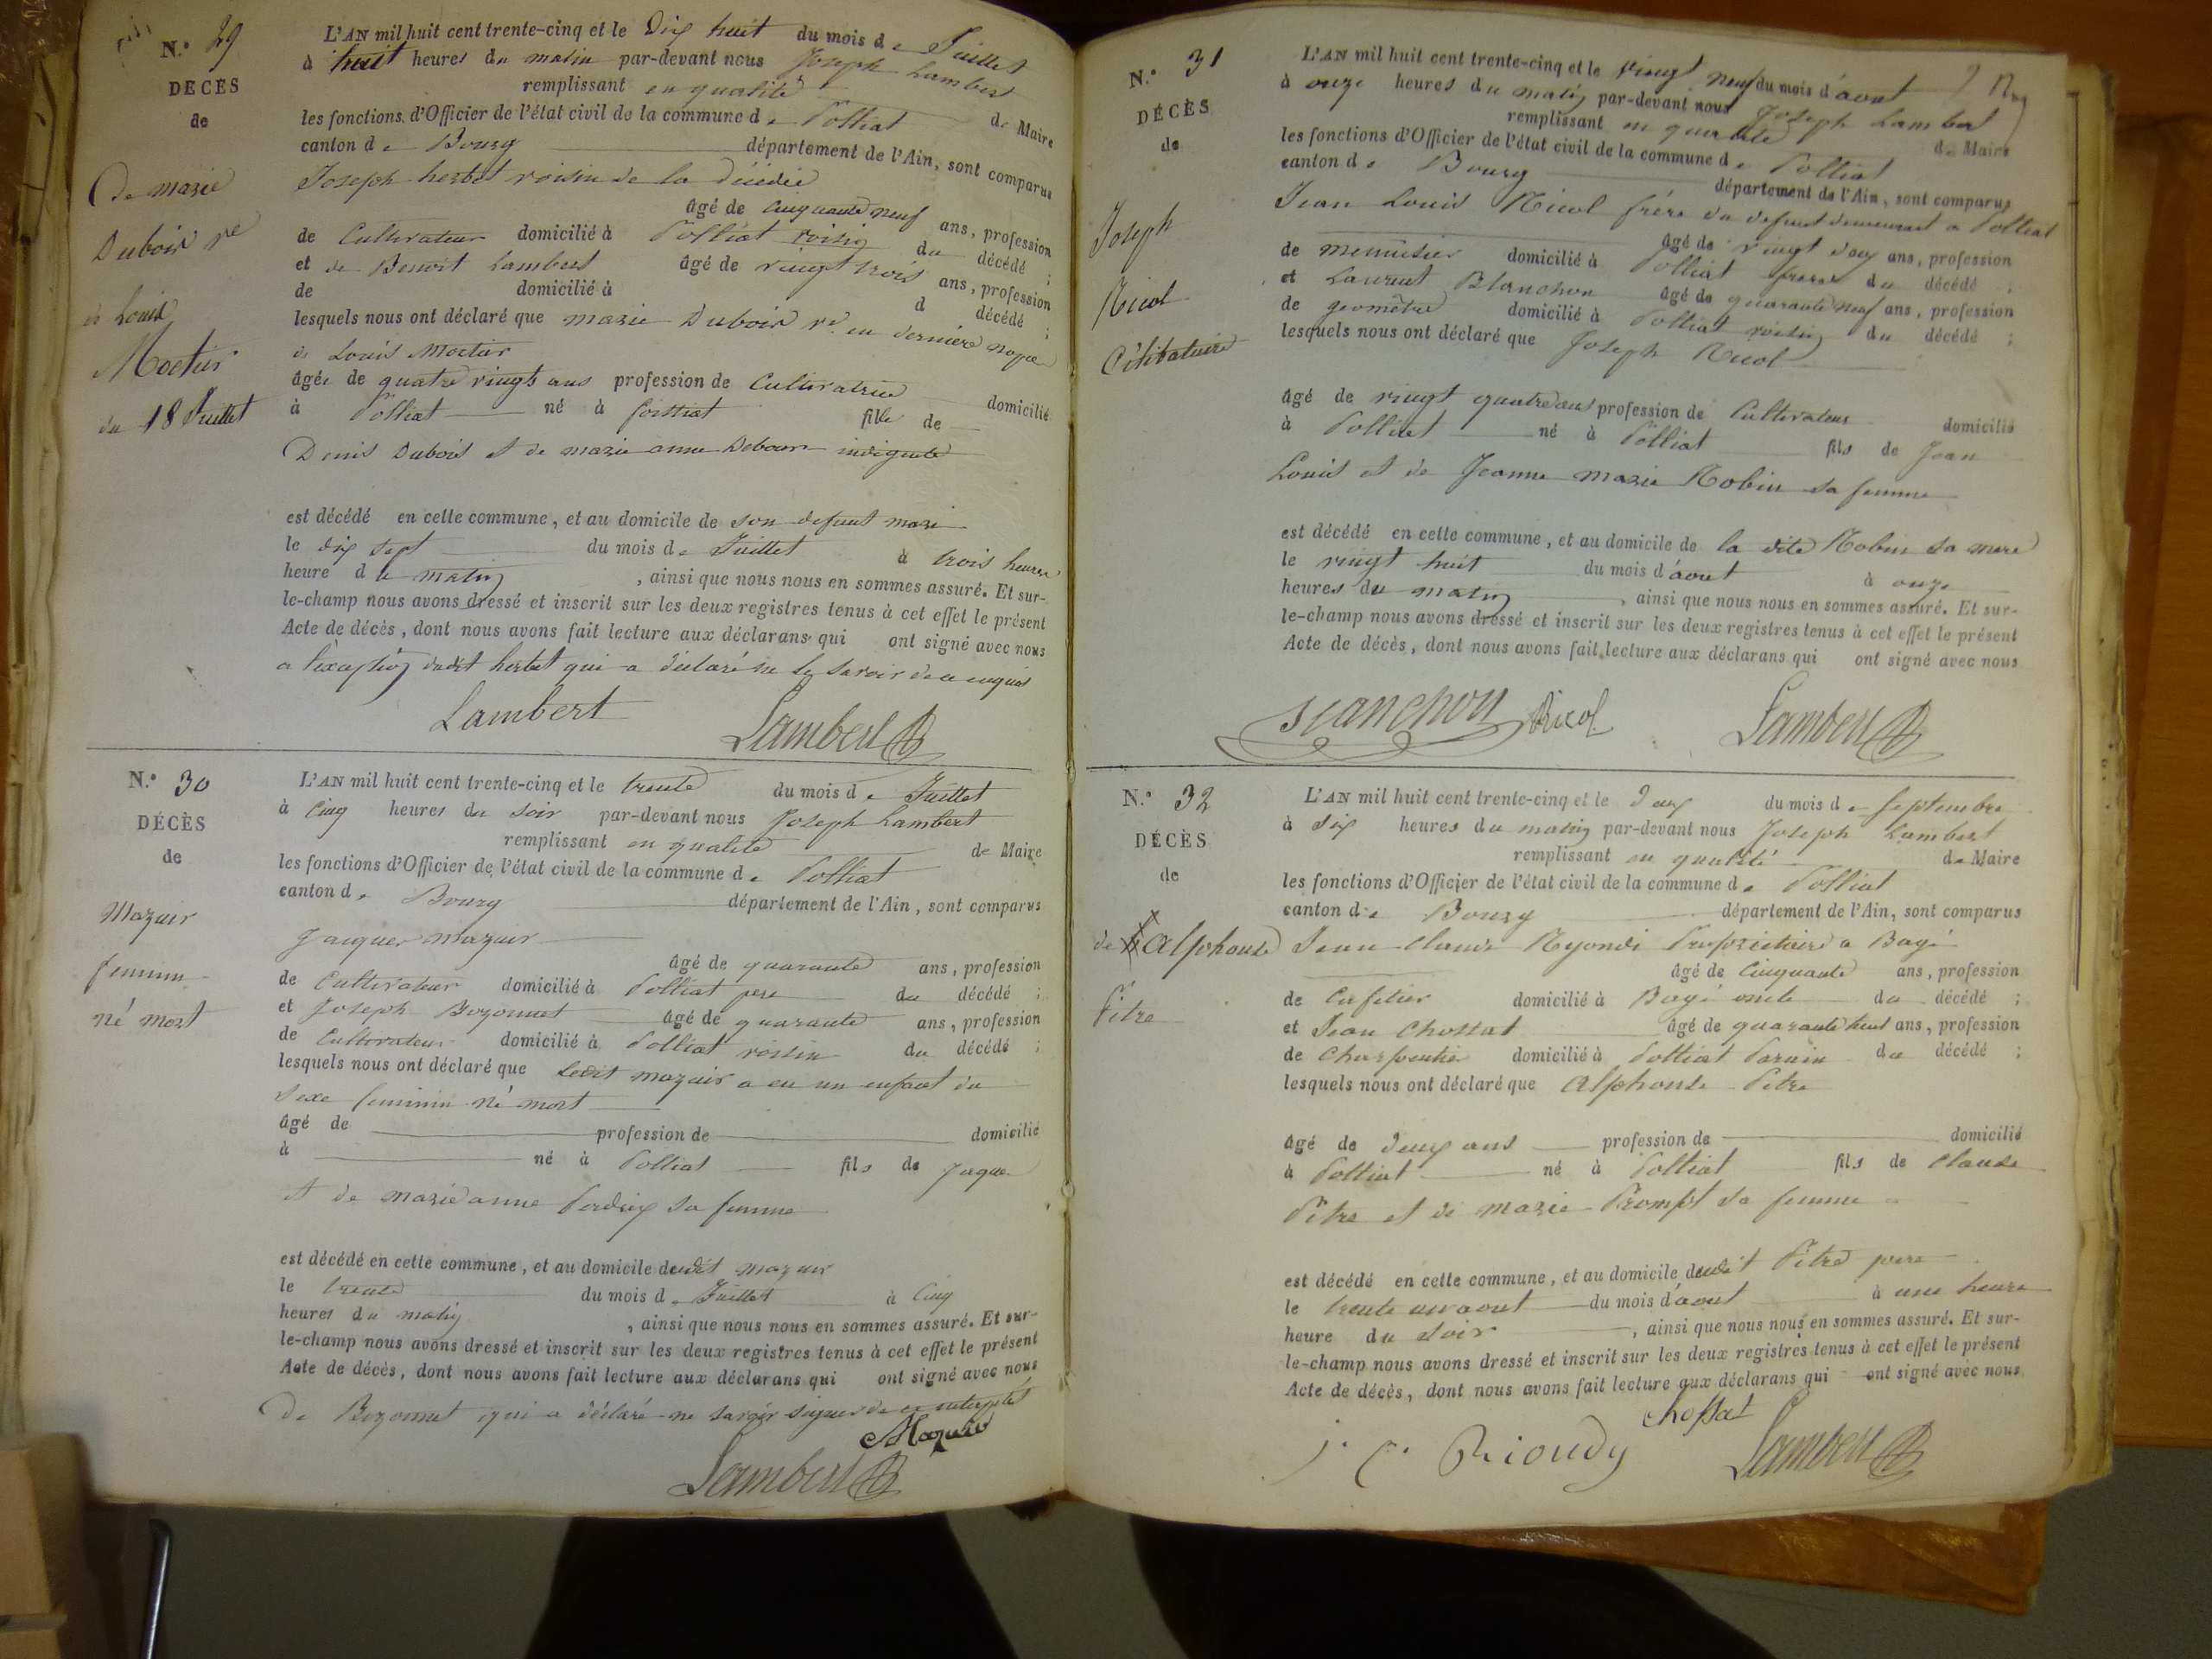 N.º 29
DÉCÈS
de
De marie
Dubois ve
de Louis
Moctier
du 18 Juillet
L'AN mil huit cent trente-cinq et le Dix huit du mois de Juillet
à huit heures du matin par-devant nous Joseph Lambert
remplissant en qualité de Maire
les fonctions d'Officier de l'état civil de la commune de Polliat
canton de Bourg département de l'Ain, sont comparus
Joseph herbet voisin de la décédée
âgé de cinquante neuf ans, profession
de Cultivateur domicilié à Polliat voisin du décédé ;
et de Benoit Lambert âgé de vingt trois ans, profession
de domicilié à d décédé ;
lesquels nous ont déclaré que marie Dubois ve en dernière nopce
de Louis Moctier
âgée de quatre vingts ans profession de Cultivatrice domicilié
à Polliat né à foissiat fille de
Denis Dubois et de marie anne Debourn indigente
est décédé en cette commune, et au domicile de son defunt mari
le dix sept du mois de Juillet à trois heures
heure du matin , ainsi que nous nous en sommes assuré. Et sur-
le-champ nous avons dressé et inscrit sur les deux registres tenus à cet effet le présent
Acte de décès, dont nous avons fait lecture aux déclarans qui ont signé avec nous
a l'exception dudit herbet qui a déclaré ne le savoir de ce enquis
Lambert Lambert
N.º 30
DÉCÈS
de
Mazuir
feminin
né mort
L'AN mil huit cent trente-cinq et le trente du mois de Juillet
à Cinq heures du soir par-devant nous Joseph Lambert
remplissant en qualité de Maire
les fonctions d'Officier de l'état civil de la commune de Polliat
canton de Bourg département de l'Ain, sont comparus
Jacques mazuir
âgé de quarante ans, profession
de Cultivateur domicilié à Polliat pere du décédé ;
et Joseph Bozonnet âgé de quarante ans, profession
de Cultivateur domicilié à Polliat voisin du décédé ;
lesquels nous ont déclaré que Ledit mazuir a eu un enfant du
sexe feminin né mort
âgé de profession de domicilié
à né à Polliat fils de Jaque
et de marie anne Perdrix sa femme
est décédé en cette commune, et au domicile dudit mazuir
le trente du mois de Juillet à Cinq
heures du matin , ainsi que nous nous en sommes assuré. Et sur-
le-champ nous avons dressé et inscrit sur les deux registres tenus à cet effet le présent
Acte de décès, dont nous avons fait lecture aux déclarans qui ont signé avec nous
De Bozonnet qui a déclaré ne savoir signer de ce
Mazuir
Lambert
N.º 31
DÉCÈS
de
Joseph
Nicol
Célibataire
L'AN mil huit cent trente-cinq et le vingt neuf du mois d'aout
à onze heures du matin par-devant nous Joseph Lambert
remplissant en qualité de Maire
les fonctions d'Officier de l'état civil de la commune de Polliat
canton de Bourg département de l'Ain, sont comparus
Jean Louis Nicol frère du defunt demeurant a Polliat
âgé de vingt deux ans, profession
de menuisier domicilié à Polliat frere du décédé ;
et Laurent Blanchon âgé de quarante neuf ans, profession
de geomètre domicilié à Polliat voisin du décédé ;
lesquels nous ont déclaré que Joseph Nicol
âgé de vingt quatre ans profession de Cultivateur domicilié
à Polliat né à Polliat fils de Jean
Louis et de Jeanne Marie Robin sa femme
est décédé en cette commune, et au domicile de la dite Robin sa mere
le vingt huit du mois d'aout à onze
heures du matin , ainsi que nous nous en sommes assuré. Et sur-
le-champ nous avons dressé et inscrit sur les deux registres tenus à cet effet le présent
Acte de décès, dont nous avons fait lecture aux déclarans qui ont signé avec nous
Blanchon Nicol Lambert
N.º 32
DÉCÈS
de
de Alphonse
Pitre
L'AN mil huit cent trente-cinq et le Deux du mois de Septembre
à dix heures du matin par-devant nous Joseph Lambert
remplissant en qualité de Maire
les fonctions d'Officier de l'état civil de la commune de Polliat
canton de Bourg département de l'Ain, sont comparus
Jean Claude Ryondi Propriétaire a Bagé
âgé de Cinquante ans, profession
de Cafetier domicilié à Bagé oncle du décédé ;
et Jean Chossat âgé de quarante huit ans, profession
de Charpentier domicilié à Polliat Parain du décédé ;
lesquels nous ont déclaré que Alphonse Pitre
âgé de deux ans profession de domicilié
à Polliat né à Polliat fils de Claude
Pitre et de Marie Prompt sa femme
est décédé en cette commune, et au domicile dudit Pitre pere
le trente un aout du mois d'aout à une heure
heure du soir , ainsi que nous nous en sommes assuré. Et sur-
le-champ nous avons dressé et inscrit sur les deux registres tenus à cet effet le présent
Acte de décès, dont nous avons fait lecture aux déclarans qui ont signé avec nous
Chossat
J. C. Rioudy Lambert